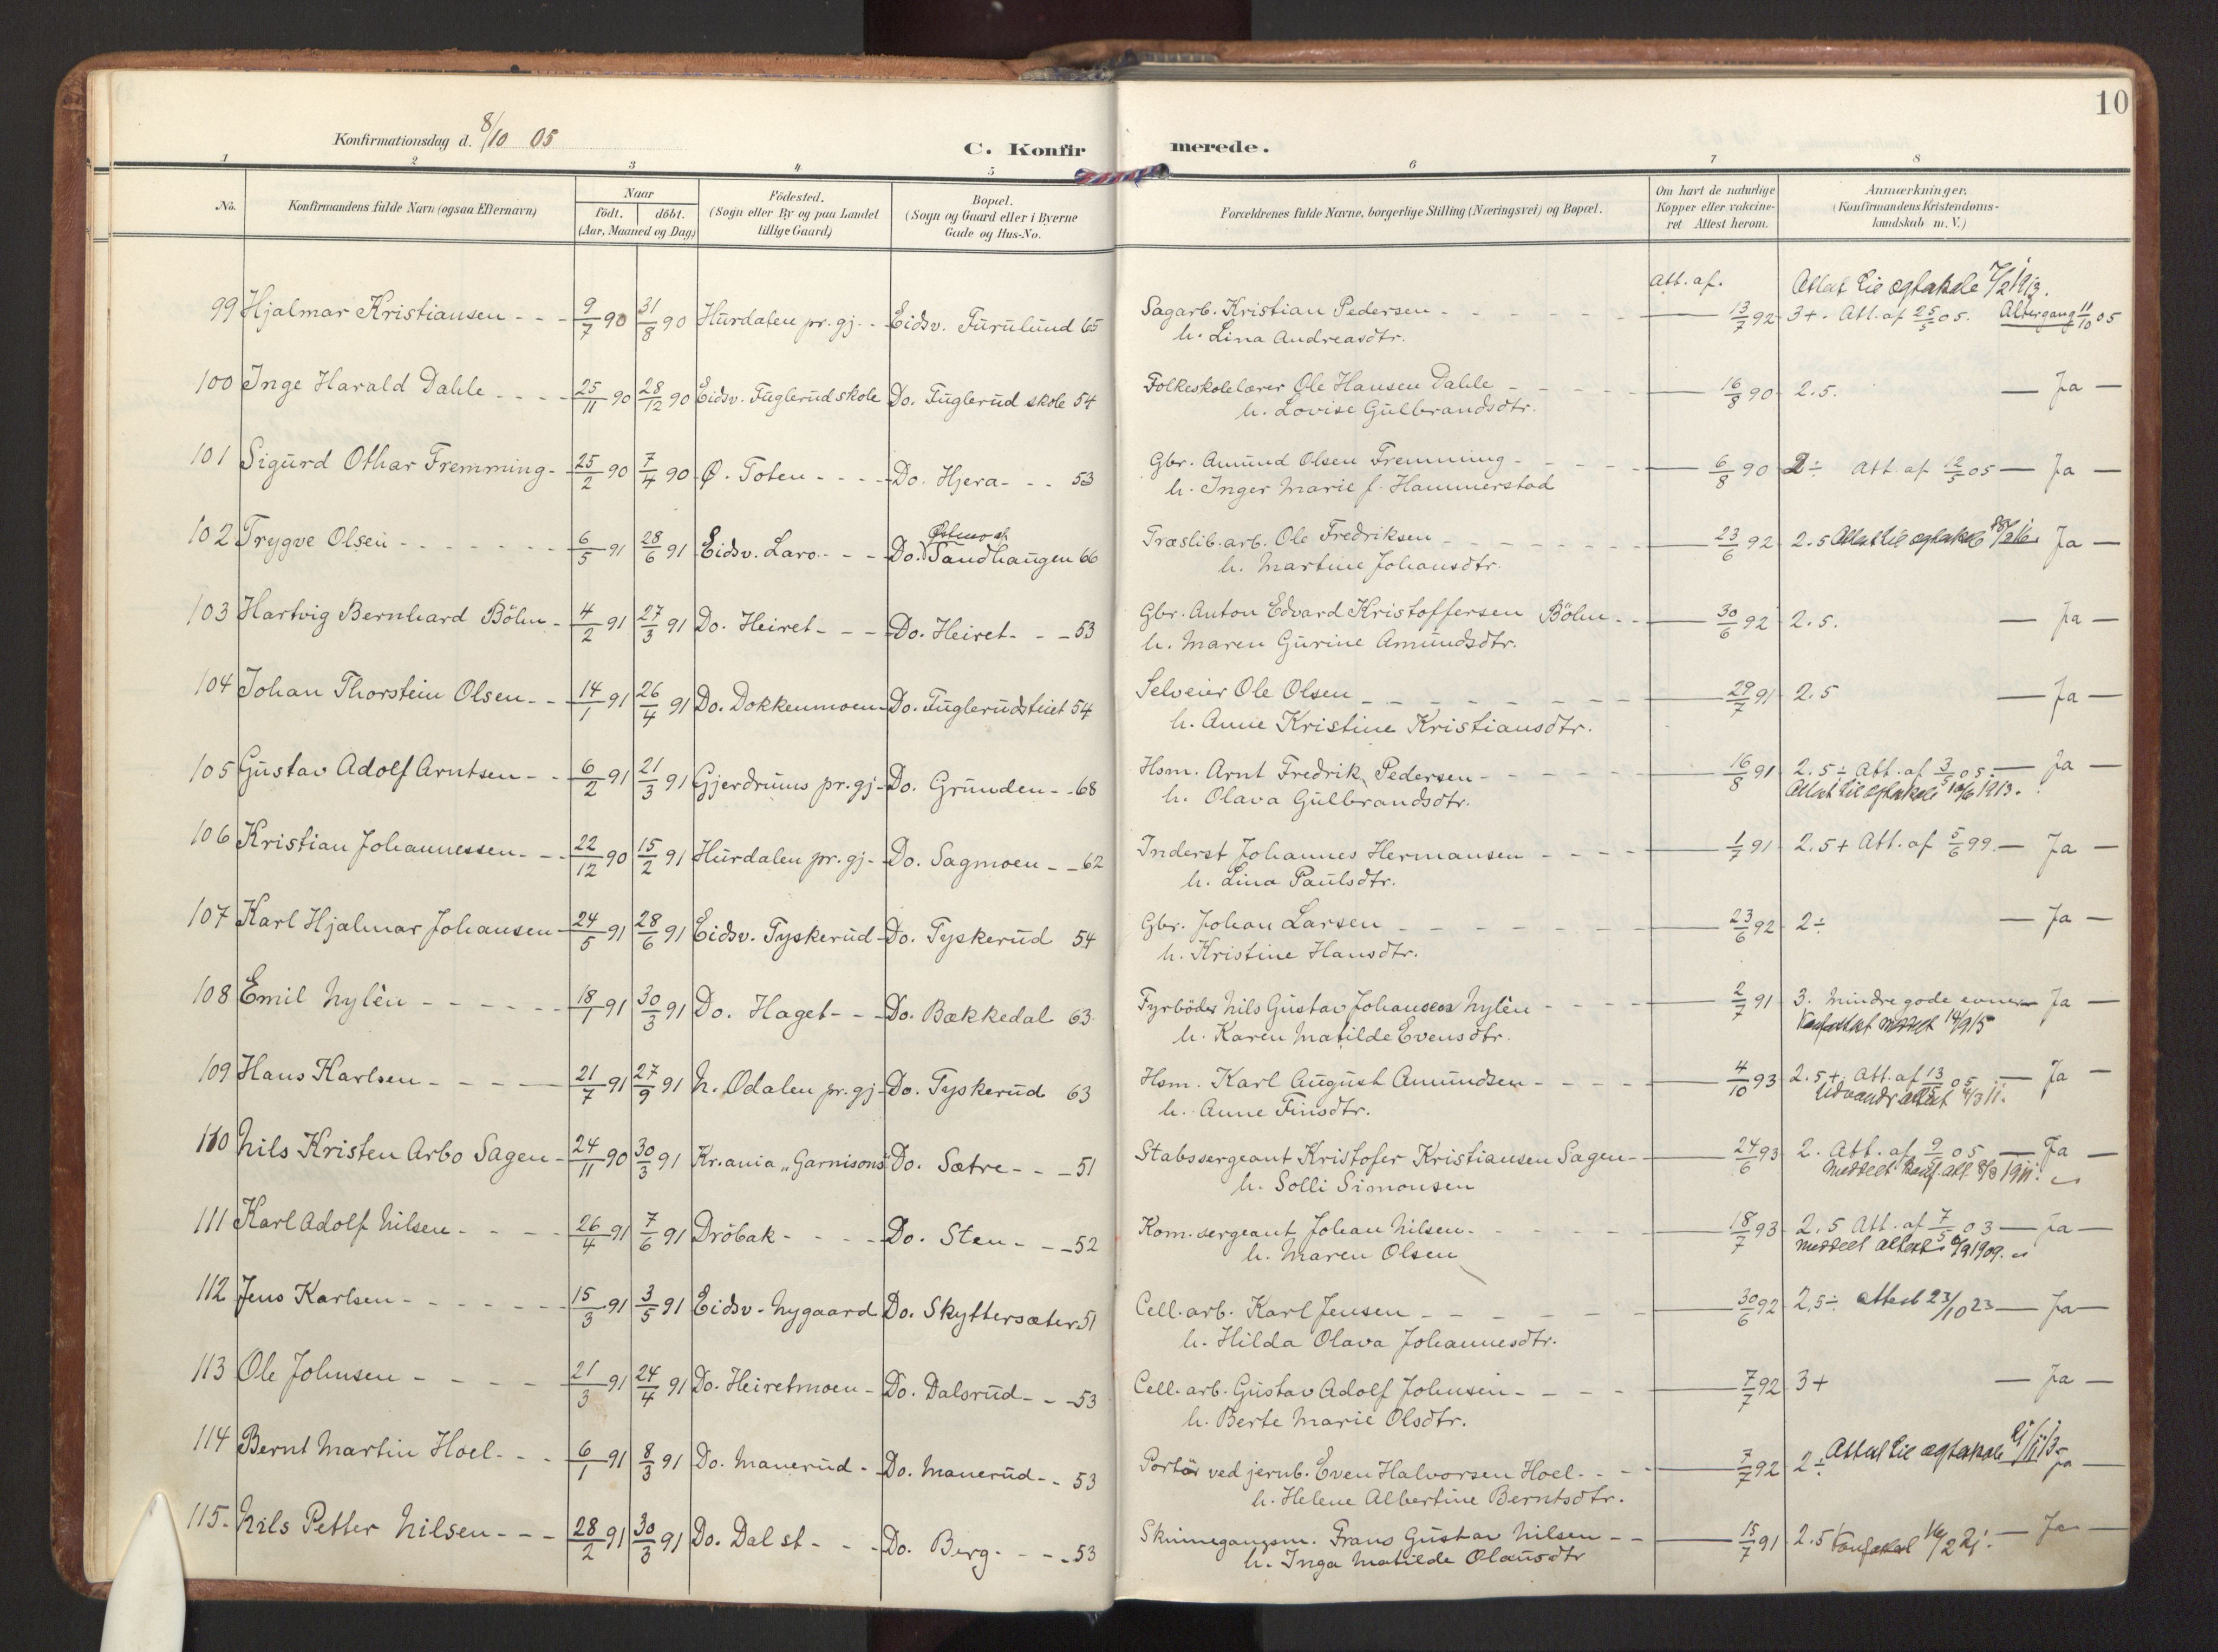 10
Konfirmationsdag d. 8/10 05
C. Konfirmerede.
1 2 3 4 5 6 7 8
No.
Konfirmandens fulde Navn (ogsaa Efternavn)
Naar
födt. döbt.
(Aar, Maaned og Dag)
Födested.
(Sogn eller By og paa Landet
tillige Gaard)
Bopæl.
(Sogn og Gaard eller i Byerne
Gade og Hus-No.
Forældrenes fulde Navne, borgerlige Stilling (Næringsvei) og Bopæl.
Om havt de naturlige
Kopper eller vakcine-
ret Attest herom.
Anmærkninger.
(Konfirmandens Kristendoms-
kundskab m. V.)
Att. af. Attest til egteskab 7/2 1913.
99 Hjalmar Kristiansen - - - 9/7 90 31/8 90 Hurdalen pr. gj. - - Eidsv. Furulund 65 Sagarb. Kristian Pedersen - - - 13/7 92 3+. Att. af 25/5 05. Altergang 11/10 05
h. Lina Andreasdtr.
100 Inge Harald Dahle - - - - 25/11 90 28/12 90 Eidsv. Fuglerud skole Do. Fuglerud skole 54 Folkeskolelærer Ole Hansen Dahle - - - 16/8 90 2.5. — Ja —
h. Lovise Gulbrandsdtr.
101 Sigurd Othar Fremming - 25/2 90 7/4 90 Ø. Toten - - - - Do. Hjera - - - 53 Gbr. Amund Olsen Fremming - - - 6/8 90 2÷ Att. af 12/5 05 — Ja —
h. Inger Marie f. Hammerstad
Østmost
102 Trygve Olsen - - - - - - 6/5 91 28/6 91 Eidsv. Laro - - - Do. Sandhaugen 66 Træslib. arb. Ole Fredriksen - - - 23/6 92 2.5 Attest til egteskab Ja —
h. Martine Johansdtr.
103 Hartvig Bernhard Böhn - 4/2 91 27/3 91 Do. Heiret - - - Do. Heiret - - - 53 Gbr. Anton Edvard Kristoffersen Böhn - - 30/6 92 2.5. — Ja —
h. Maren Gurine Amundsdtr.
104 Johan Thorstein Olsen - - 14/1 91 26/4 91 Do. Dokkenmoen - Do. Fuglerudsteiet 54 Selveier Ole Olsen - - - 29/7 91 2.5 — Ja —
h. Anne Kristine Kristiansdtr.
105 Gustav Adolf Arntsen - - 6/2 91 21/3 91 Gjerdrums pr. gj - Do. Grunden - - 68 Hsm. Arnt Fredrik Pedersen - - - 16/8 91 2.5÷ Att. af 3/5 05. — Ja —
h. Olava Gulbrandsdtr. Attest til egteskab 10/6 1913.
106 Kristian Johannessen - - 22/12 90 15/2 91 Hurdalen pr. gj - Do. Sagmoen - - 62 Inderst Johannes Hermansen - - - 1/7 91 2.5+ Att. af 5/6 99. — Ja —
h. Lina Paulsdtr.
107 Karl Hjalmar Johansen - 24/5 91 28/6 91 Eidsv. Tyskerud - Do. Tyskerud 54 Gbr. Johan Larsen - - - 23/6 92 2÷ — Ja —
h. Kristine Hansdtr.
108 Emil Nylén - - - - - 18/1 91 30/3 91 Do. Haget - - - Do. Bækkedal 63 Fyrböder Nils Gustav Johansen Nylén - - - 2/7 91 3. Mindre gode evner — Ja —
h. Karen Matilde Evensdtr. 14/9 15
109 Hans Karlsen - - - - 21/7 91 27/9 91 N. Odalen pr. gj - Do. Tyskerud 63 Hsm. Karl August Amundsen - - - 4/10 93 2.5+. Att. af 13/5 05 — Ja —
h. Anne Finsdtr. Udvandr attest 4/3 11.
110 Nils Kristen Arbo Sagen - 24/11 90 30/3 91 Kr.ania „Garnisons" Do. Sætre - - - 51 Stabssergeant Kristofer Kristiansen Sagen - - 24/6 93 2. Att. af 9/5 05 — Ja —
h. Solli Simonsen Meddelt konf. att. 8/3 1911.
111 Karl Adolf Nilsen - - - 26/4 91 7/6 91 Dröbak - - - - Do. Sten - - - 52 Kom. sergeant Johan Nilsen - - - 18/7 93 2.5 Att. af 7/5 03 — Ja —
h. Maren Olsen Meddelt attest 6/9 1909.
112 Jens Karlsen - - - - - 15/3 91 3/5 91 Eidsv. Nygaard Do. Skyttersæter 51 Cell. arb. Karl Jensen - - - 30/6 92 2.5÷. attest 23/10 23 — Ja —
h. Hilda Olava Johannesdtr.
113 Ole Johnsen - - - - - 21/3 91 24/4 91 Do. Heiretmoen - Do. Dalsrud - - - 53 Cell. arb. Gustav Adolf Johnsen - - - 7/7 92 3+ — Ja —
h. Berte Marie Olsdtr.
114 Bernt Martin Hoel - - - 6/1 91 8/3 91 Do. Manerud - Do. Manerud - - 53 Portör ved jernb. Even Halvorsen Hoel - - - 7/7 92 2÷ Attest til egteskab Ja —
h. Helene Albertine Berntsdtr.
115. Nils Petter Nilsen - - - 28/2 91 30/3 91 Do. Dal st - - - Do. Berg - - - 53 Skinnegangsm. Frans Gustav Nilsen - - 15/7 91 2.5 — Ja —
h. Inga Matilde Olausdtr